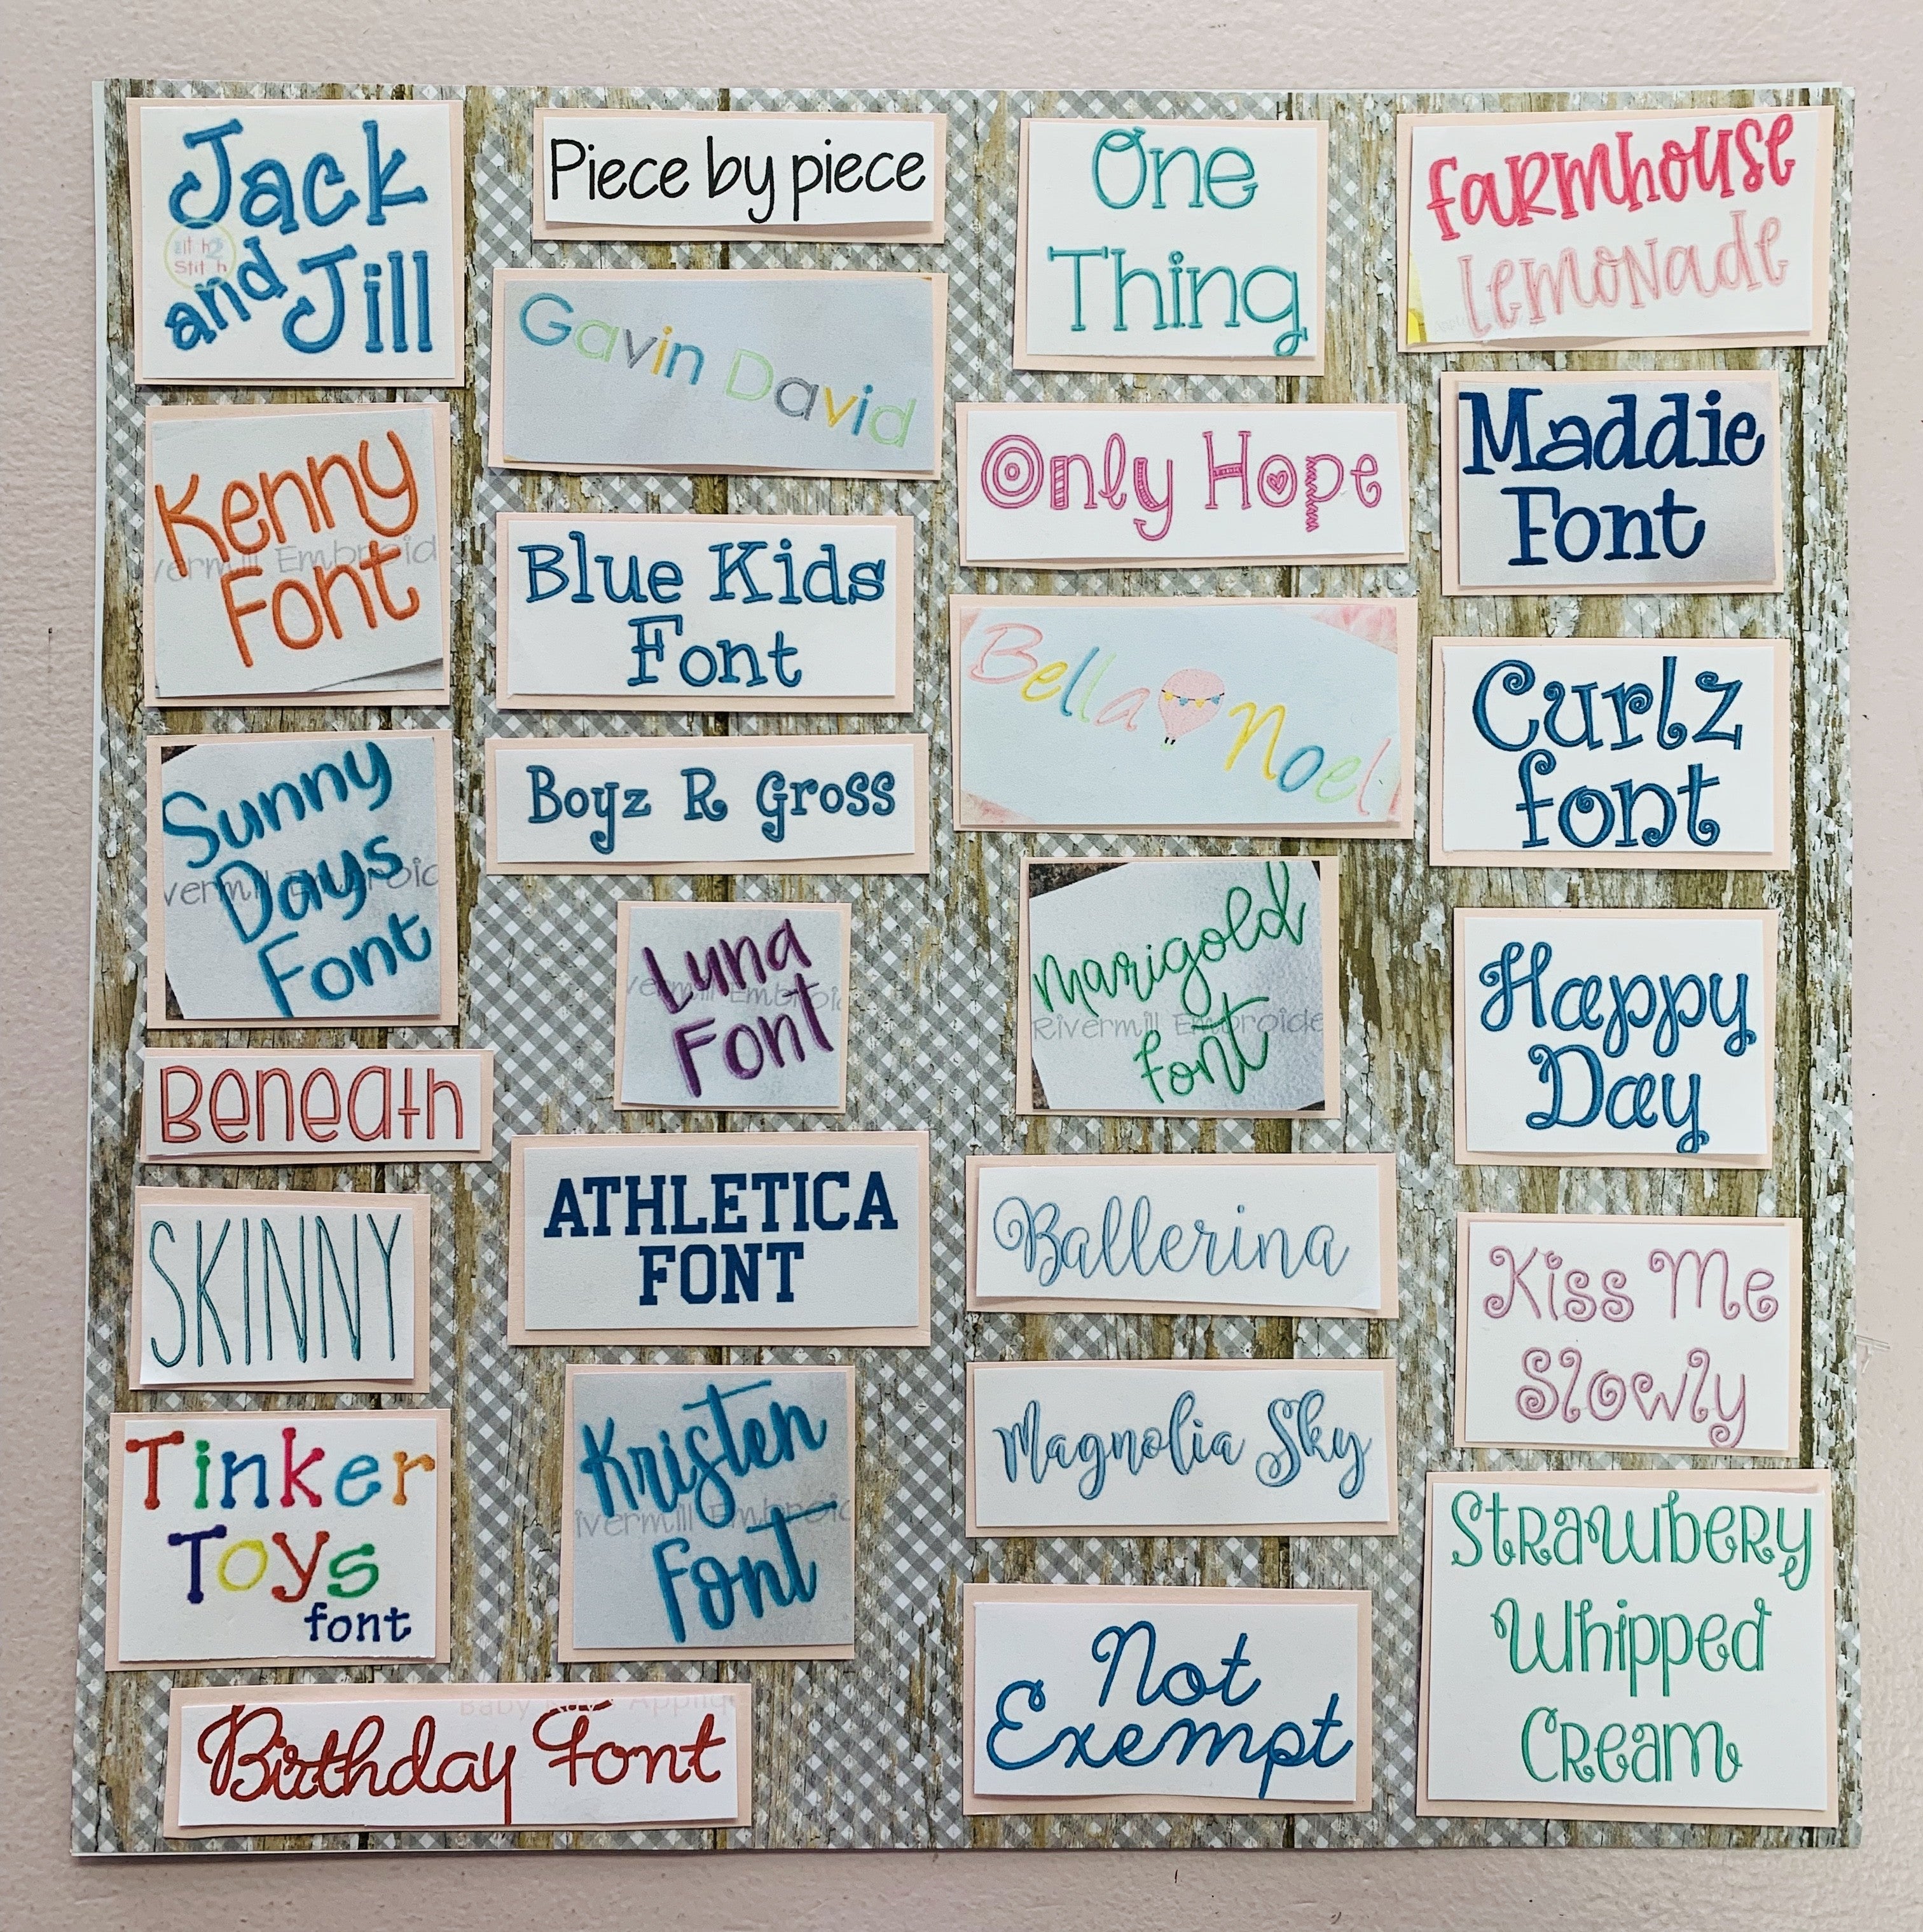 Jack
and Jill
Stitch
Kenny
Font
vermill Embroid
Sunny
Days
Font
vermill Embroid
Beneath
SKINNY
Tinker
Toys
font
Birthday Font
Piece by piece
Gavin David
Blue Kids
Font
Boyz R Gross
Luna
Font
vermill Embroid
ATHLETICA
FONT
Kristen
Font
ivermill Embroid
One
Thing
Only Hope
Bella Noel
Marigold
font
Rivermill Embroide
Ballerina
Magnolia Sky
Not
Exempt
FaRmhouse
Lemonade
Maddie
Font
Curlz
font
Happy
Day
Kiss Me
Slowly
StRawbeRy
Whipped
CReam